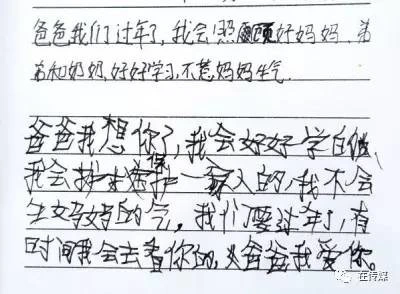 爸爸我们过年了,我会照顾好妈妈、弟
弟和奶奶,好好学习,不惹妈妈生气.
爸爸我想你了,我会好好学自继、
我会护一家人的,我不会
生妈妈的气。我们要过年了,有
时间我会去看你的,爸爸我爱你。
在传媒